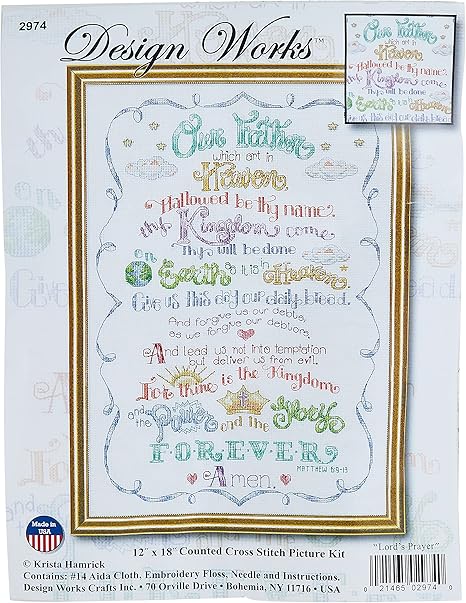 2974
Design Works™
Our Father
which art in
Heaven.
Hallowed be thy name.
thy Kingdom come
Thy will be done
on Earth as it is in Heaven
Give us this day our daily bread.
And forgive us our debts,
as we forgive our debtors.
And lead us not into temptation
but deliver us from evil.
For thine is the Kingdom
and the Power and the Glory
FOREVER,
MATTHEW 6:9-13
Amen.
Our Father
which art in
Heaven.
Hallowed be thy name.
Kingdom come
Thy will be done
Earth as it is in Heaven
us this day our daily bread.
Made in
USA
12" x 18" Counted Cross Stitch Picture Kit
"Lord's Prayer"
© Krista Hamrick
Contains: #14 Aida Cloth, Embroidery Floss, Needle and Instructions.
Design Works Crafts Inc. • 70 Orville Drive • Bohemia, NY 11716 • USA
0 21465 02974 0